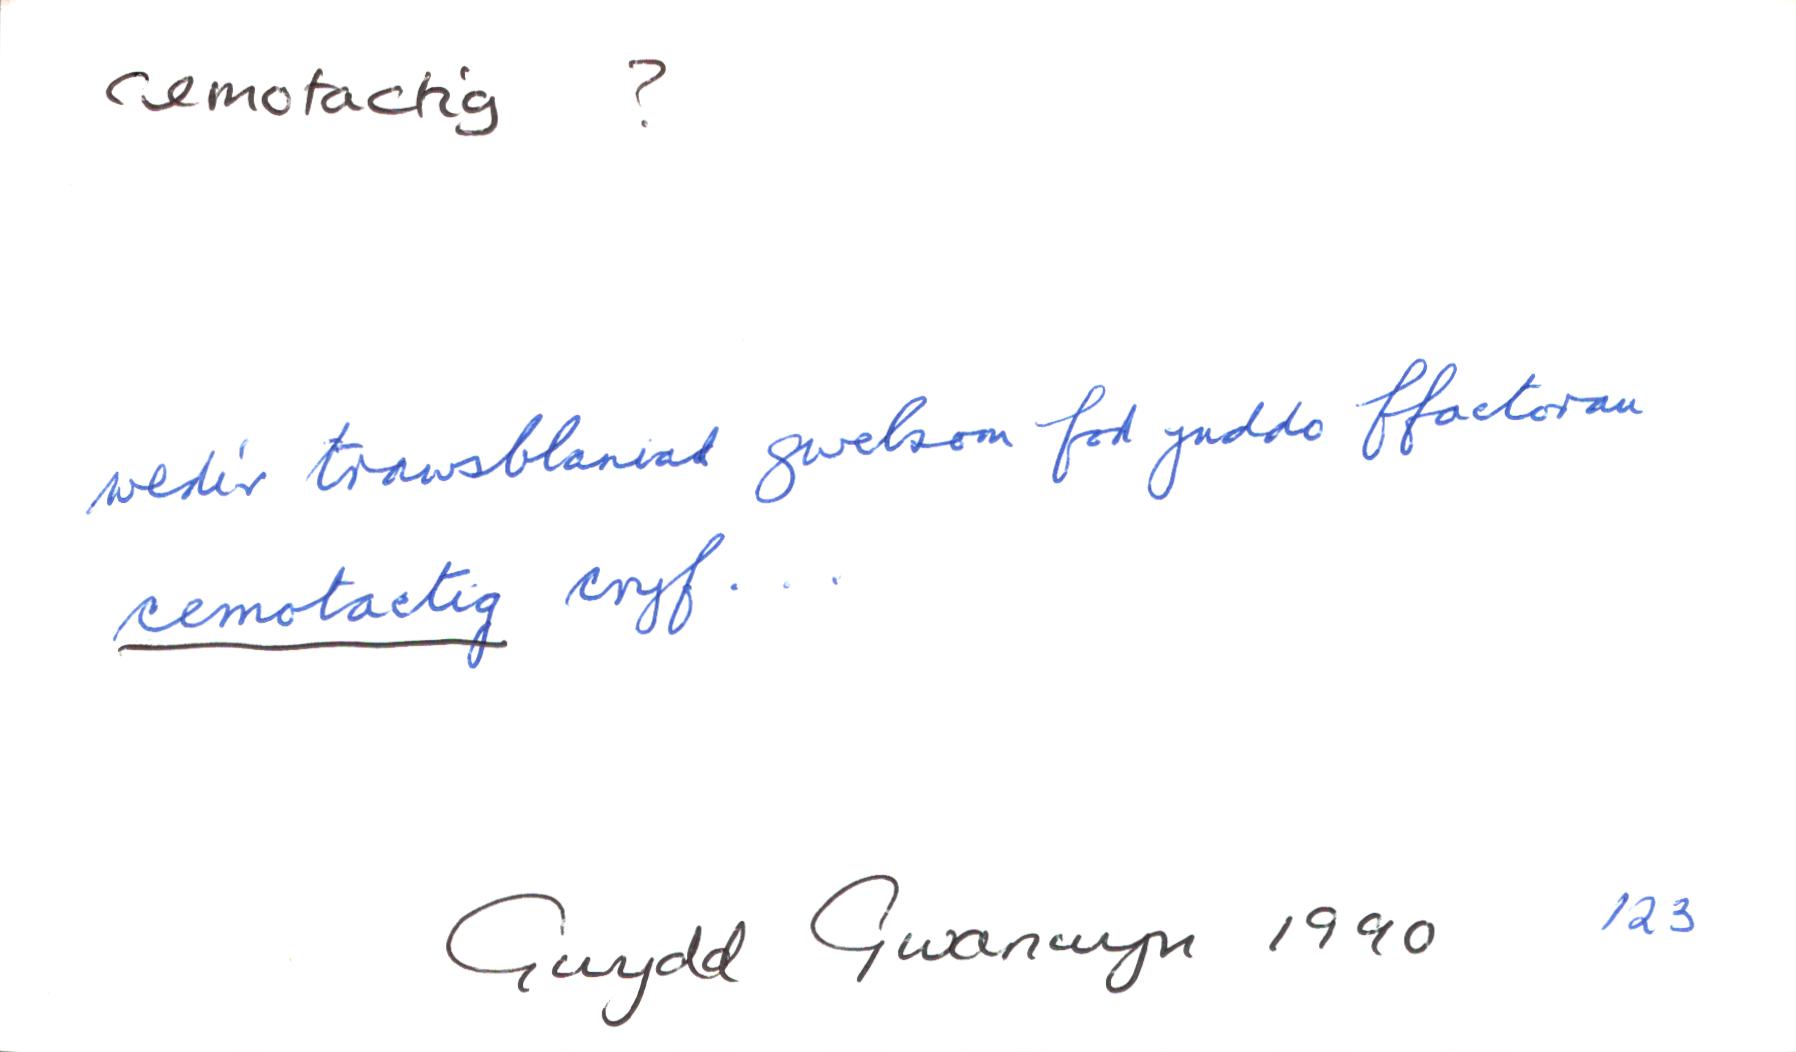 cemotactig ?
wedi'r trawsblaniad gwelsom fod ynddo ffactorau
cemotactig cryf....
Gwydd Gwanwyn 1990 123